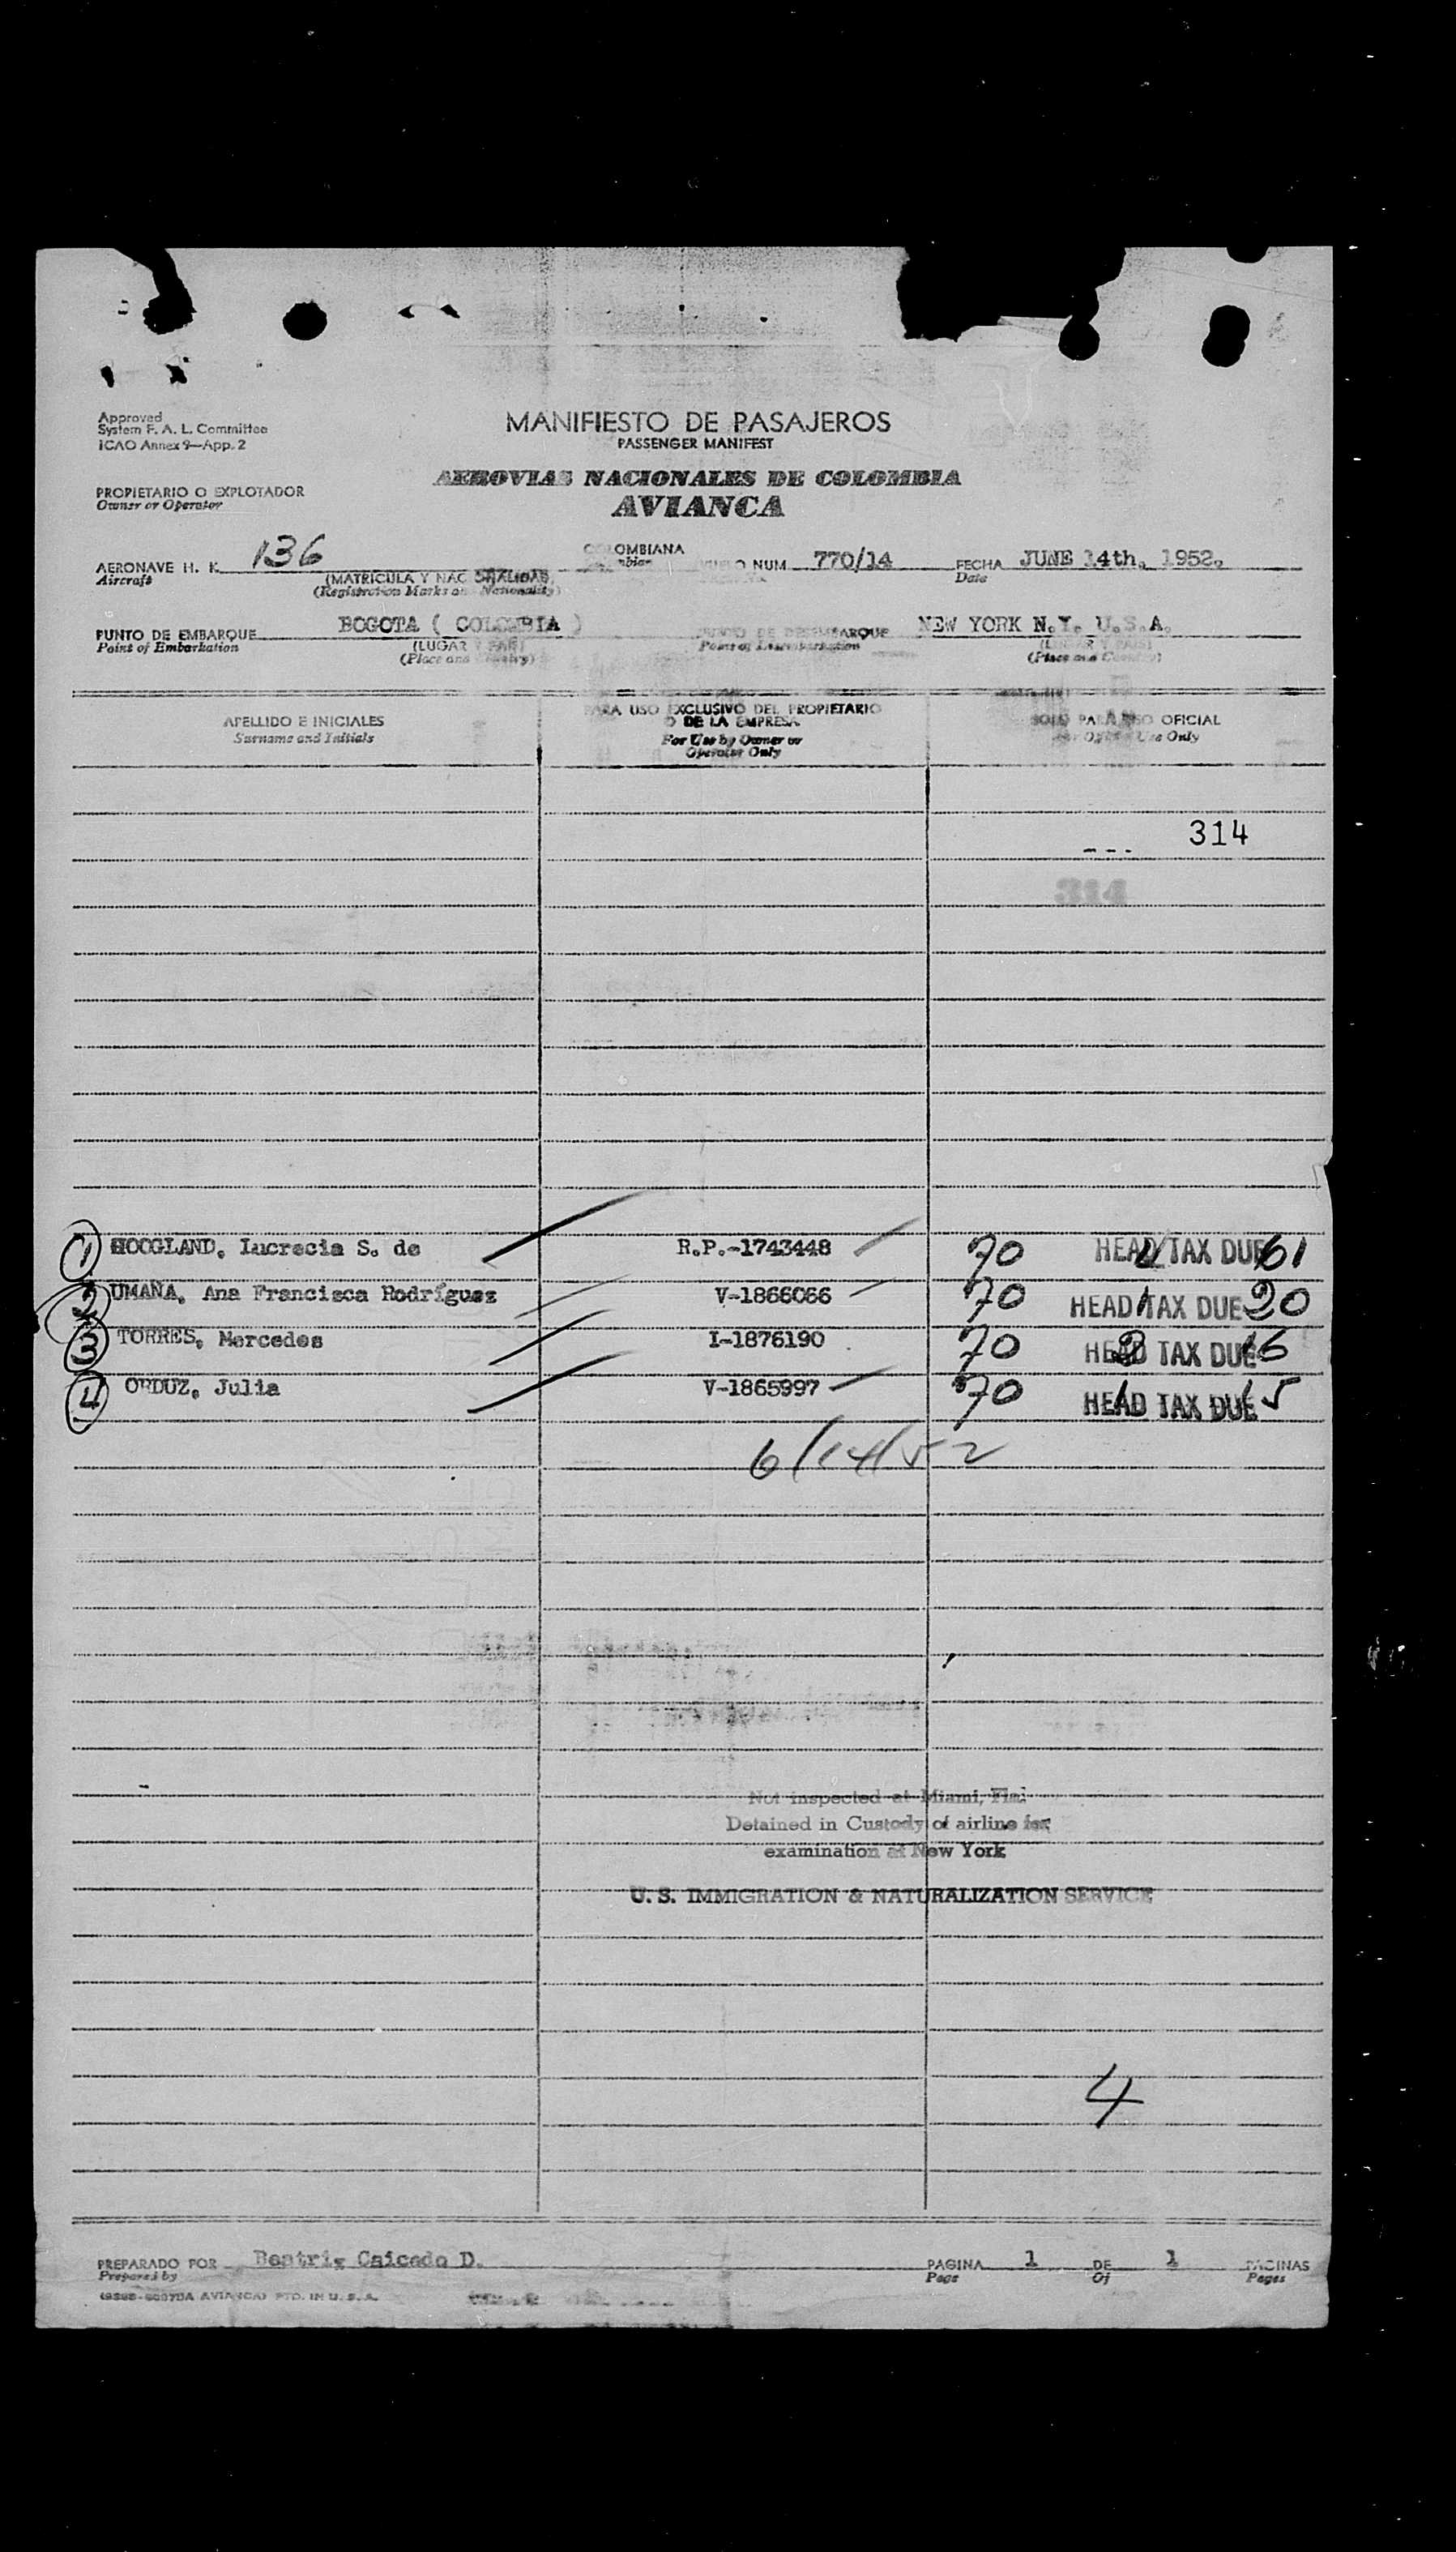 Approved
System F. A. L. Committee
ICAO Annex 9—App. 2
MANIFIESTO DE PASAJEROS
PASSENGER MANIFEST
AEROVIAS NACIONALES DE COLOMBIA
AVIANCA
PROPIETARIO O EXPLOTADOR
Owner or Operator
AERONAVE H. K. 136 COLOMBIANA NUM 770/14 FECHA JUNE 14th, 1952.
Aircraft (MATRICULA Y NAC Date
(Registration Marks and Nationality)
PUNTO DE EMBARQUE BOGOTA ( COLOMBIA ) PUNTO DE DESEMBARQUE NEW YORK N.Y. U.S.A.
Point of Embarkation (LUGAR Y PAIS) Point of Disembarkation (LUGAR Y PAIS)
(Place and Country) (Place and Country)
APELLIDO E INICIALES
Surname and Initials
PARA USO EXCLUSIVO DEL PROPIETARIO
O DE LA EMPRESA
For Use by Owner or
Operator Only
SOLO PARA USO OFICIAL
For Official Use Only
314
314
1 HOOGLAND, Lucrecia S. de R.P.-1743448 70 HEAD TAX DUE 61
2 UMAÑA, Ana Francisca Rodríguez V-1866066 70 HEAD TAX DUE 20
3 TORRES, Mercedes I-1876190 70 HEAD TAX DUE 16
4 ORDUZ, Julia V-1865997 70 HEAD TAX DUE 15
6/14/52
Not inspected at Miami, Fla.
Detained in Custody of airline for
examination at New York
U. S. IMMIGRATION & NATURALIZATION SERVICE
4
PREPARADO POR Beatriz Caicedo D. PAGINA 1 DE 1 PAGINAS
Prepared by Page Of Pages
AVIANCA) PTD. IN U. S. A.